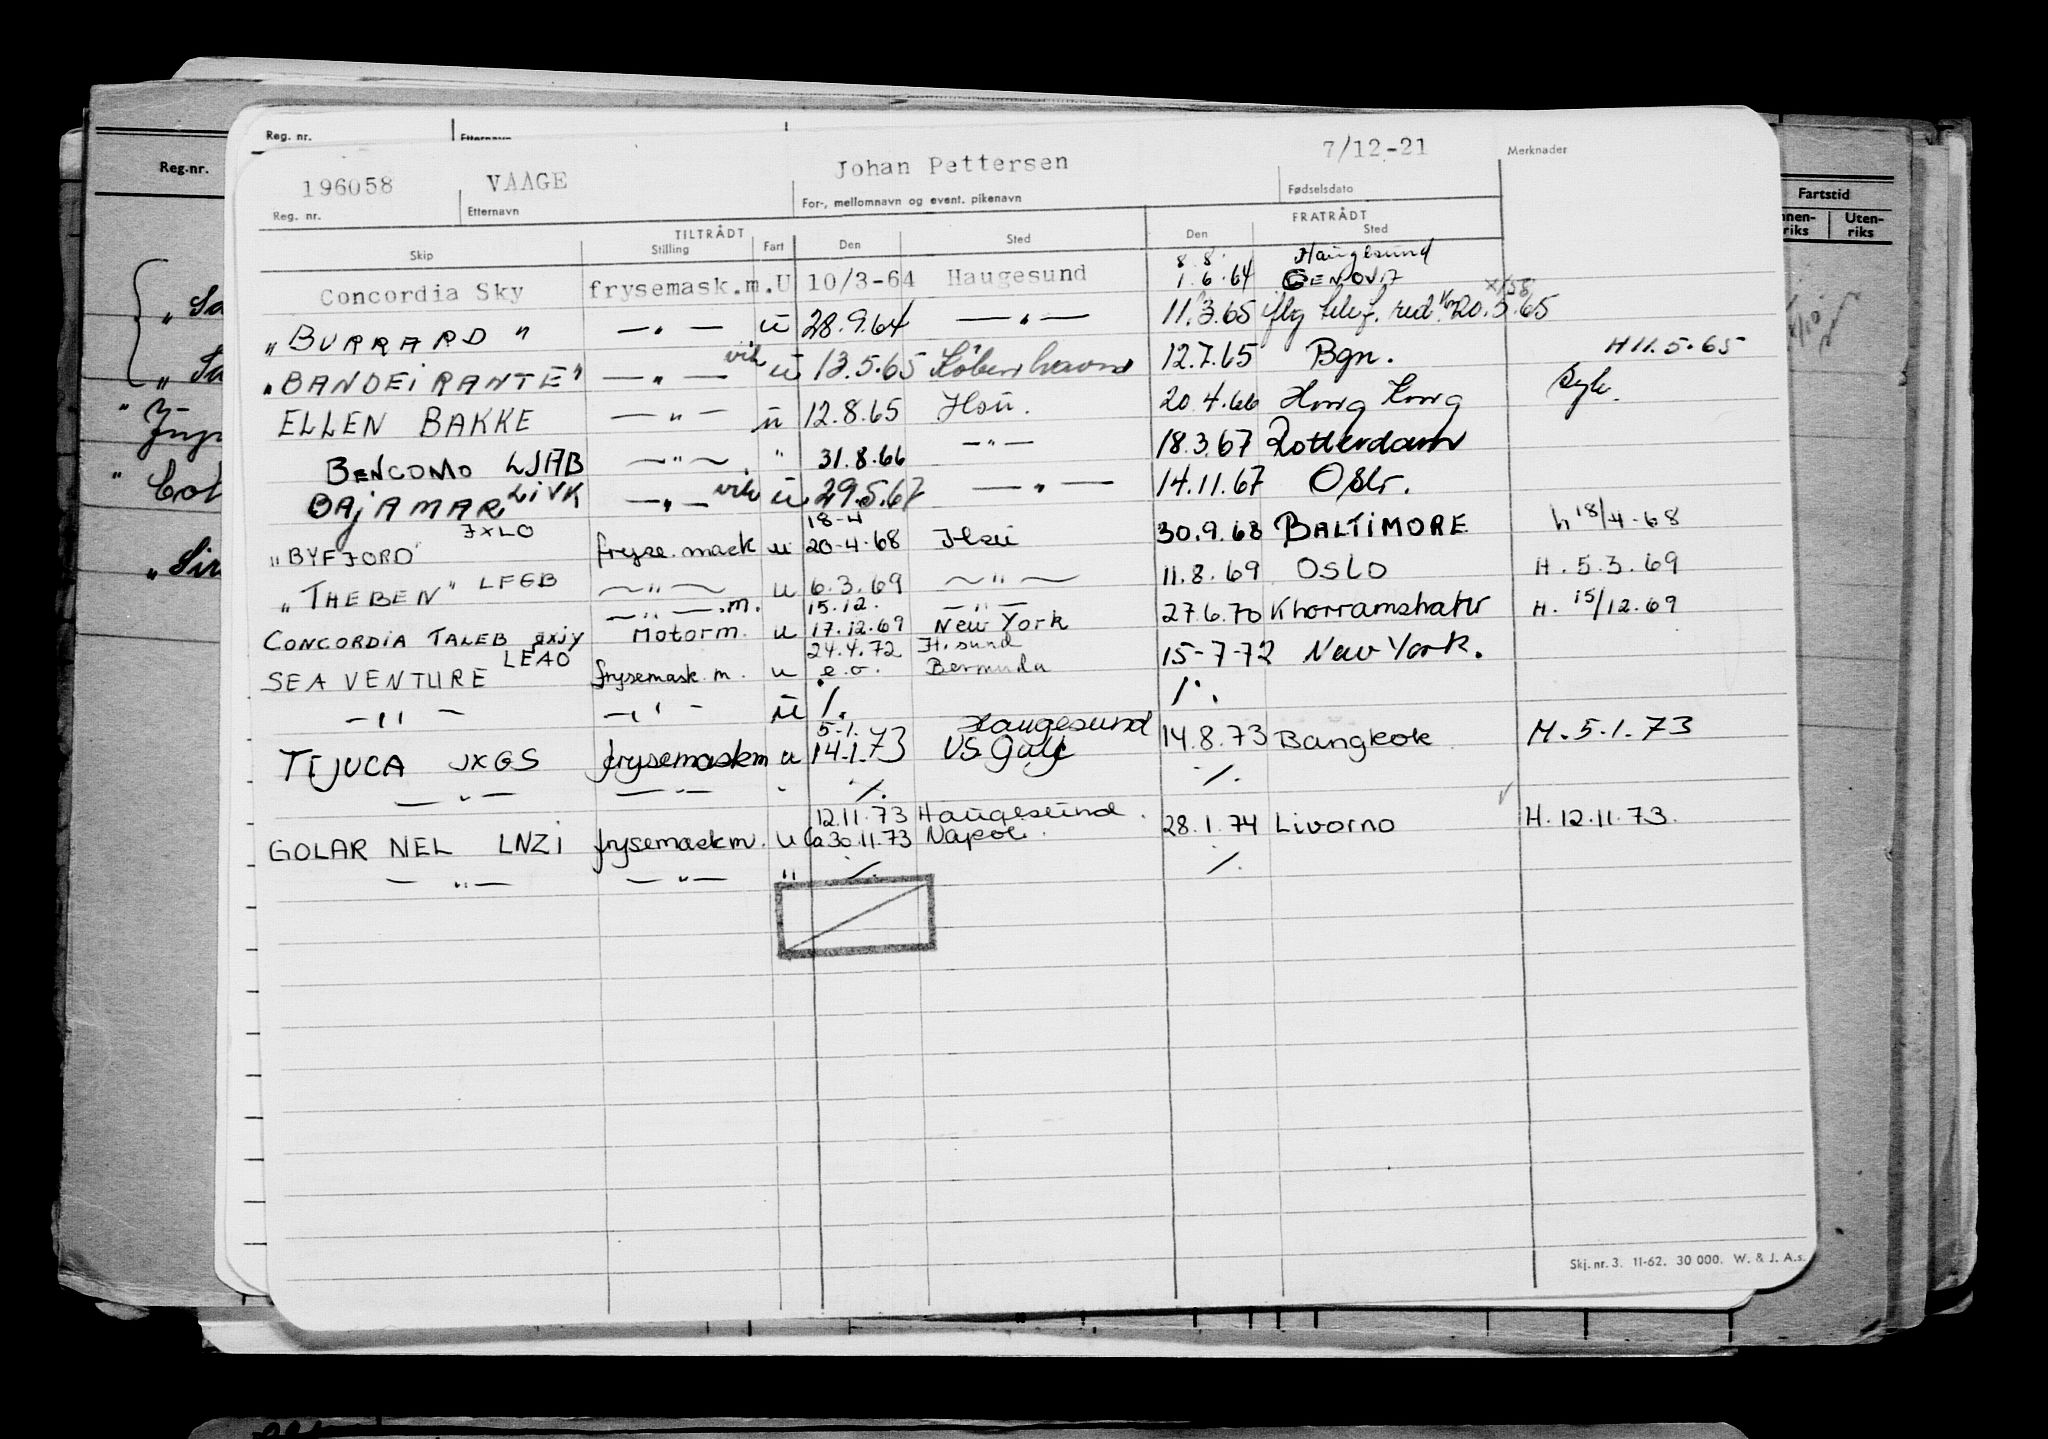 Reg. nr. Etternavn
Reg.nr.
196058 VAAGE Johan Pettersen 7/12-21 Merknader
Reg. nr. Etternavn For-, mellomnavn og event. pikenavn Fødselsdato
Fartstid
Uten-
riks
TILTRÅDT FRATRÅDT
Skip Stilling Fart Den Sted Den Sted
8.8. Haugesund
Concordia Sky frysemask.m. U 10/3-64 Haugesund 1.6.64 GENOVA
"BURRARD" —"— u 28.9.64 —"— 11.3.65 iflg 20.5.65
"BANDEIRANTE" —"— vik u 13.5.65 København 12.7.65 Bgn. H 11.5.65
ELLEN BAKKE —"— u 12.8.65 Hsu. 20.4.66 Hong Kong Syk.
BENCOMO LJAB —"— " 31.8.66 —"— 18.3.67 Rotterdam
BAJAMAR LIVK —"— vik u 29.5.67 —"— 14.11.67 Oslo.
18-4
"BYFJORD" JXLO fryse.mask u 20-4-68 Hsu 30.9.68 BALTIMORE h 18/4-68
"THEBEN" LFGB —"— u 6.3.69 —"— 11.8.69 OSLO H. 5.3.69
—"— .m. 15.12. —"—
CONCORDIA TALEB Motorm. u 17.12.69 New York 27.6.70 Khorramshahr H. 15/12.69
LEAO 24.4.72 H.sund
SEA VENTURE frysemask.m. u e.o. Bermuda 15-7-72 New York.
—"— —"— u ./. ./.
5.1. Haugesund
TIJUCA JXGS frysemaskm u 14.1.73 US Gulf 14.8.73 Bangkok H. 5.1.73
—"— —"— " ./. ./.
12.11.73 Haugesund.
GOLAR NEL LNZI frysemaskm. u ca 30.11.73 Napoli. 28.1.74 Livorno H. 12.11.73.
—"— —"— " ./. ./.
Skj. nr. 3. 11-62. 30 000. W. & J. A.s.